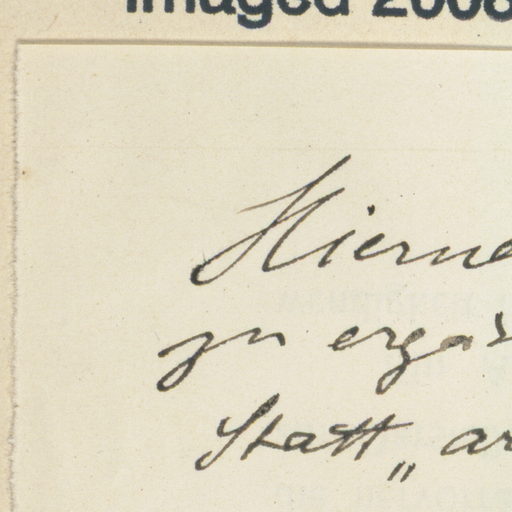 Imaged 2008
Hierne
zu ergä
Statt „ ar